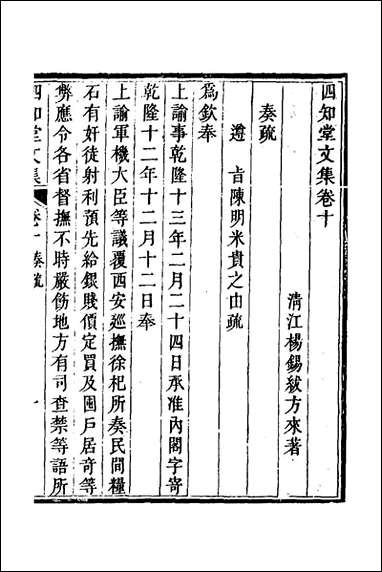 四知堂文集卷十
清江楊錫紱方來著
奏疏
遵 㫖陳明米貴之由疏
為欽奉
上諭事乾隆十三年二月二十四日承准內閣字寄
乾隆十二年十二月十二日奉
上諭軍機大臣等議覆西安巡撫徐杞所奏民間糧
石有奸徒射利預先給銀賤價定買及囤戶居奇等
弊應令各省督撫不時嚴飭地方有司查禁等語所
四知堂文集 卷十 奏疏 一